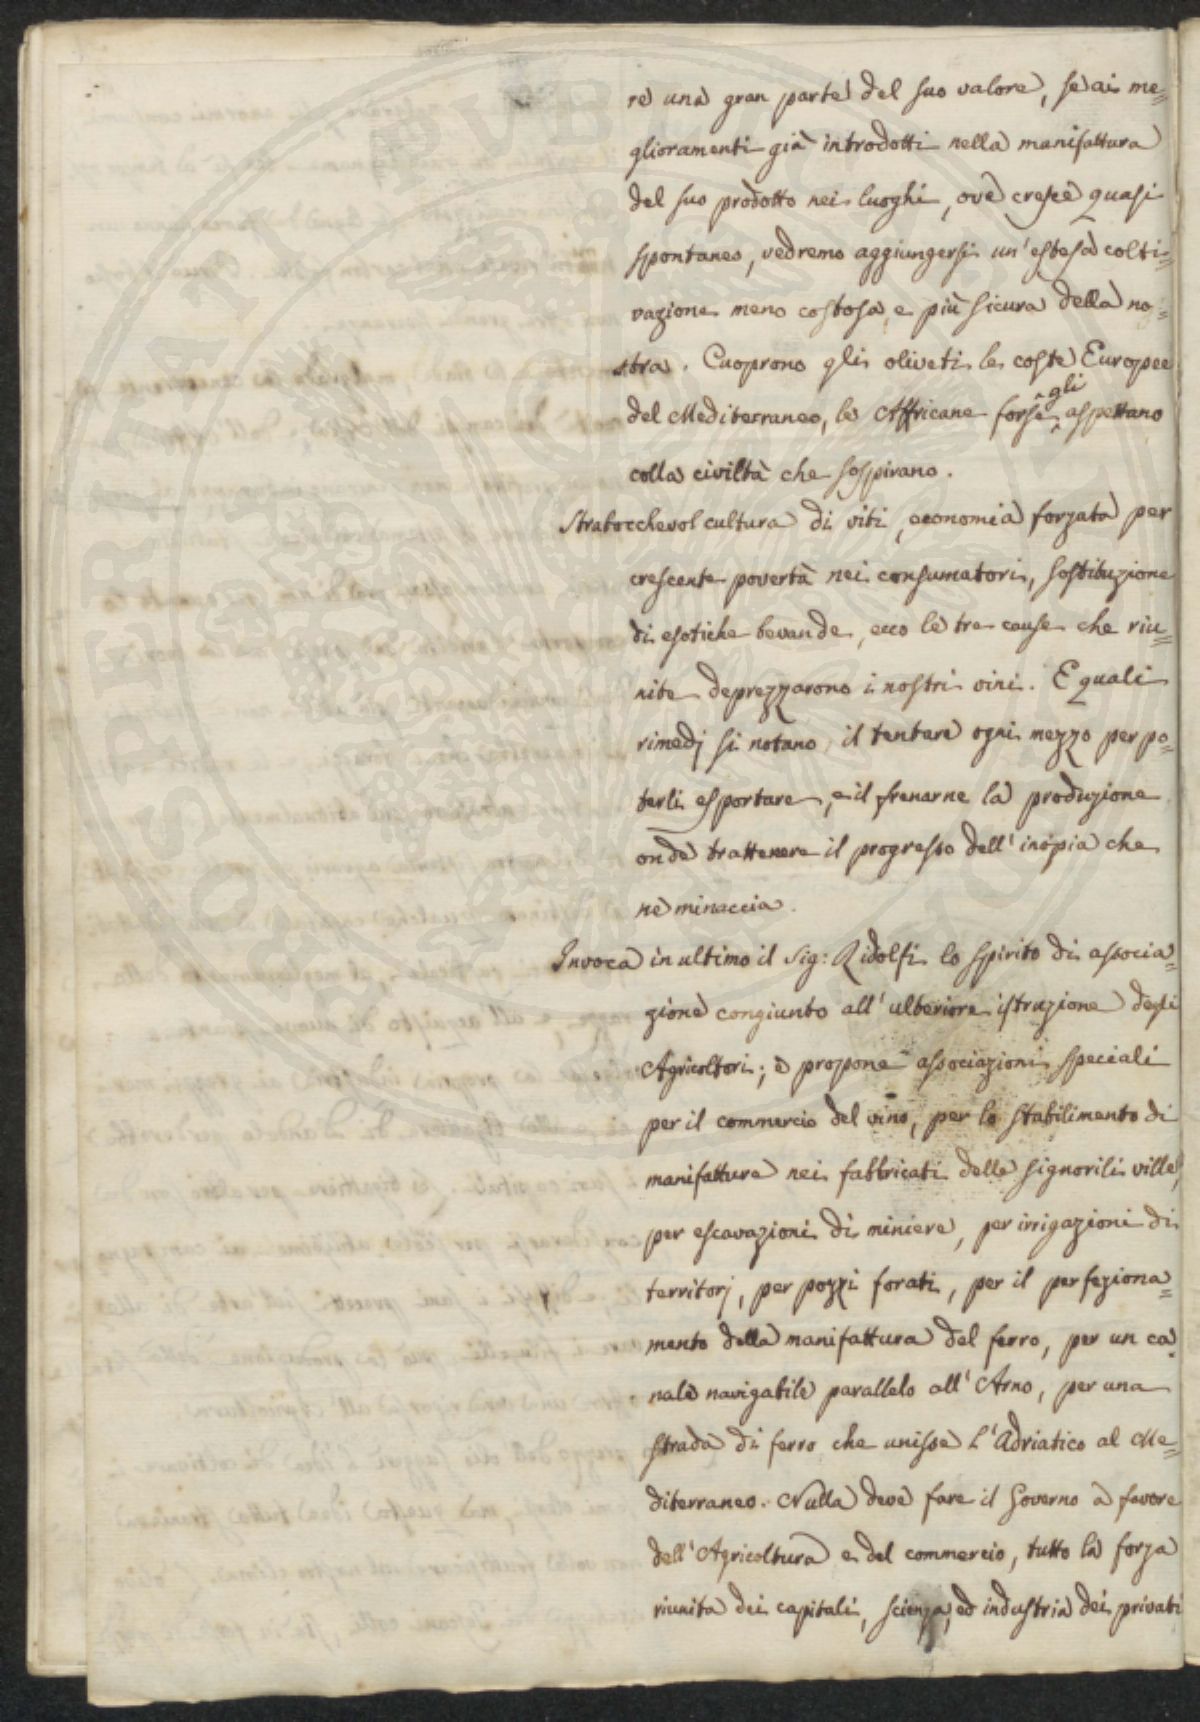 re una gran parte del suo valore, se ai me=
glioramenti già introdotti nella manifattura
del suo prodotto nei luoghi, ove cresce quasi
spontaneo, vedremo aggiungersi un'estesa colti=
vazione meno costosa, e più sicura della no=
stra. Cuoprono gli oliveti le coste Europee
del Mediterraneo, le Affricane forse gli aspettano
colla civiltà che sospirano.
Strabocchevol cultura di viti, economia forzata per
crescente povertà nei consumatori, sostituzione
di esotiche bevande, ecco le tre cause che riu=
nite deprezzarono i nostri vini. E quali
rimedj si notano, il tentare ogni mezzo per po=
terli esportare, e il frenarne la produzione
onde trattenere il progresso dell'inopia che
ne minaccia.
Invoca in ultimo il Sig: Ridolfi lo spirito di associa=
zione congiunto all'ulteriore istruzione degli
Agricoltori; e propone associazioni speciali
per il commercio del vino, per lo stabilimento di
manifatture nei fabbricati delle signorili ville,
per escavazioni di miniere, per irrigazioni di
territorj, per pozzi forati, per il perfeziona=
mento della manifattura del ferro, per un ca=
nale navigabile parallelo all'Arno, per una
strada di ferro che unisse l'Adriatico al Me=
diterraneo. Nulla deve fare il Governo a favore
dell'Agricoltura e del commercio, tutto la forza
riunita dei capitali, scienza, ed industria dei privati
PROSPERITATI PUBLICAE